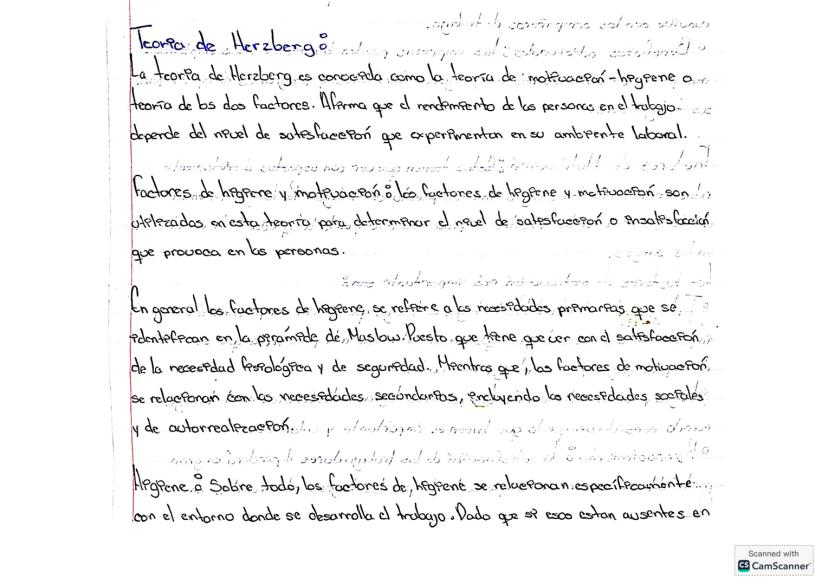 Teoria de Herzberg:
La teoria de Herzberg es conocida como la teoría de motivación-higiene o
teoría de los dos factores. Afirma que el rendimiento de las personas en el trabajo
depende del nivel de satisfacción que experimentan en su ambiente laboral.
Factores de higiene y motivación: los factores de higiene y motivación son
utilizadas en esta teoría para determinar el nivel de satisfacción o insatisfacción
que provoca en las personas.
En general los factores de higiene, se refiere a las necesidades primarias que se
identifican en la pirámide de Maslow. Puesto que tiene que ver con el satisfacción
de la necesidad fisiológica y de seguridad. Mientras que, los factores de motivación
se relacionan con las necesidades secundarias, incluyendo las necesidades sociales
y de autorrealización.
Higiene: Sobre todo, los factores de higiene se relacionan específicamente
con el entorno donde se desarrolla el trabajo. Dado que si esos estan ausentes en
Scanned with
CS CamScanner